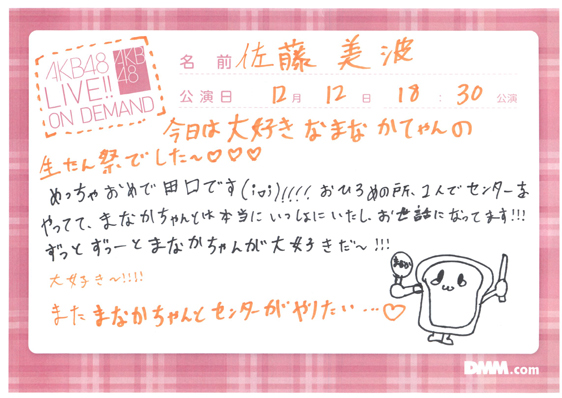 AKB48
LIVE!!
ON DEMAND
AKB
48
名前 佐藤美波
公演日 12月12日 18:30 公演
今日は大好きなまなかちゃんの
生たん祭でした〜♡♡♡
めっちゃおめで田口です(;o;)!!!! おひろめの所、2人でセンターを
やってて、まなかちゃんとは本当にいっしょにいたし、お世話になってます!!!
ずっとずぅーとまなかちゃんが大好きだ〜!!!
大好き〜!!!!
またまなかちゃんとセンターがやりたい…♡
まなか
DMM.com